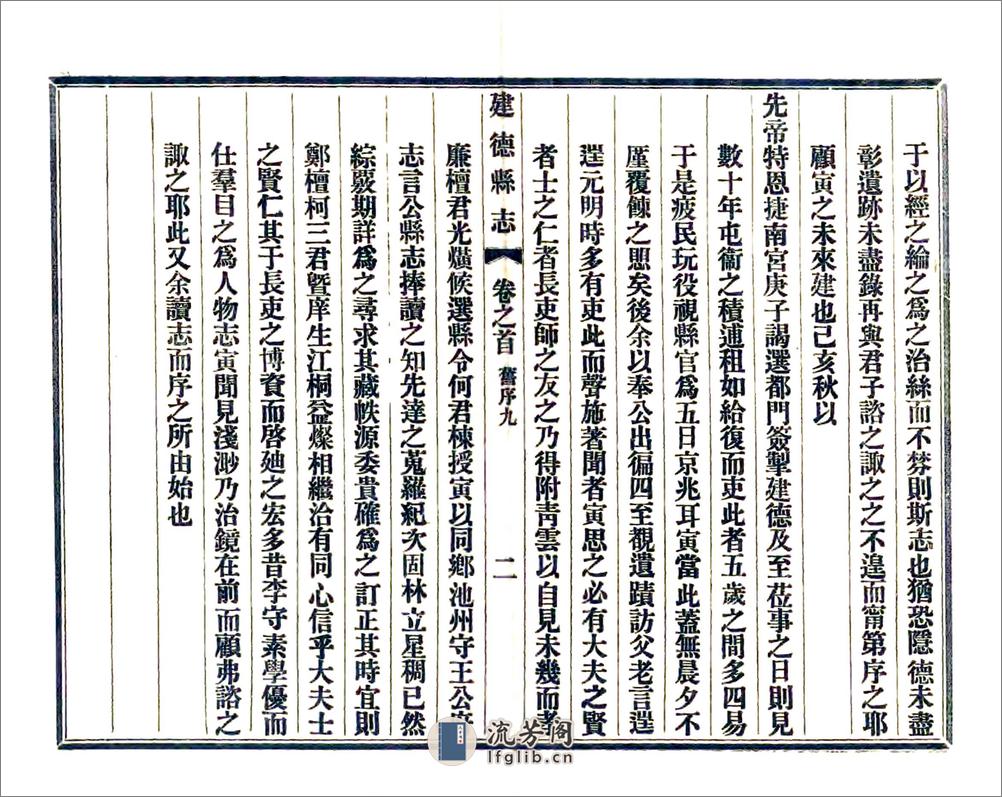 于以經之綸之爲之治絲而不棼則斯志也猶恐隱德未盡
彰遺跡未盡錄再與君子諮之諏之之不遑而甯第序之耶
顧寅之未來建也己亥秋以
先帝特恩捷南宮庚子謁選都門簽掣建德及至莅事之日則見
數十年屯衞之積逋租如給復而吏此者五歲之間多四易
于是疲民玩役視縣官爲五日京兆耳寅當此蓋無晨夕不
厪覆餗之思矣後余以奉公出徧四至覩遺蹟訪父老言逞
逞元明時多有吏此而聲施著聞者寅思之必有大夫之賢
者士之仁者長吏師之友之乃得附青雲以自見未幾而孝
建德縣志
卷之首 舊序九
二
廉檀君光爌候選縣令何君棟授寅以同鄉池州守王公
志言公縣志捧讀之知先達之蒐羅紀次固林立星稠已然
綜覈期詳爲之尋求其藏帙源委貴確爲之訂正其時宜則
鄭檀柯三君暨庠生江桐益燦相繼洽有同心信乎大夫士
之賢仁其于長吏之博資而啓廸之宏多昔李守素學優而
仕羣目之爲人物志寅聞見淺渺乃治鏡在前而顧弗諮之
諏之耶此又余讀志而序之所由始也
流芳阁
lfglib.cn